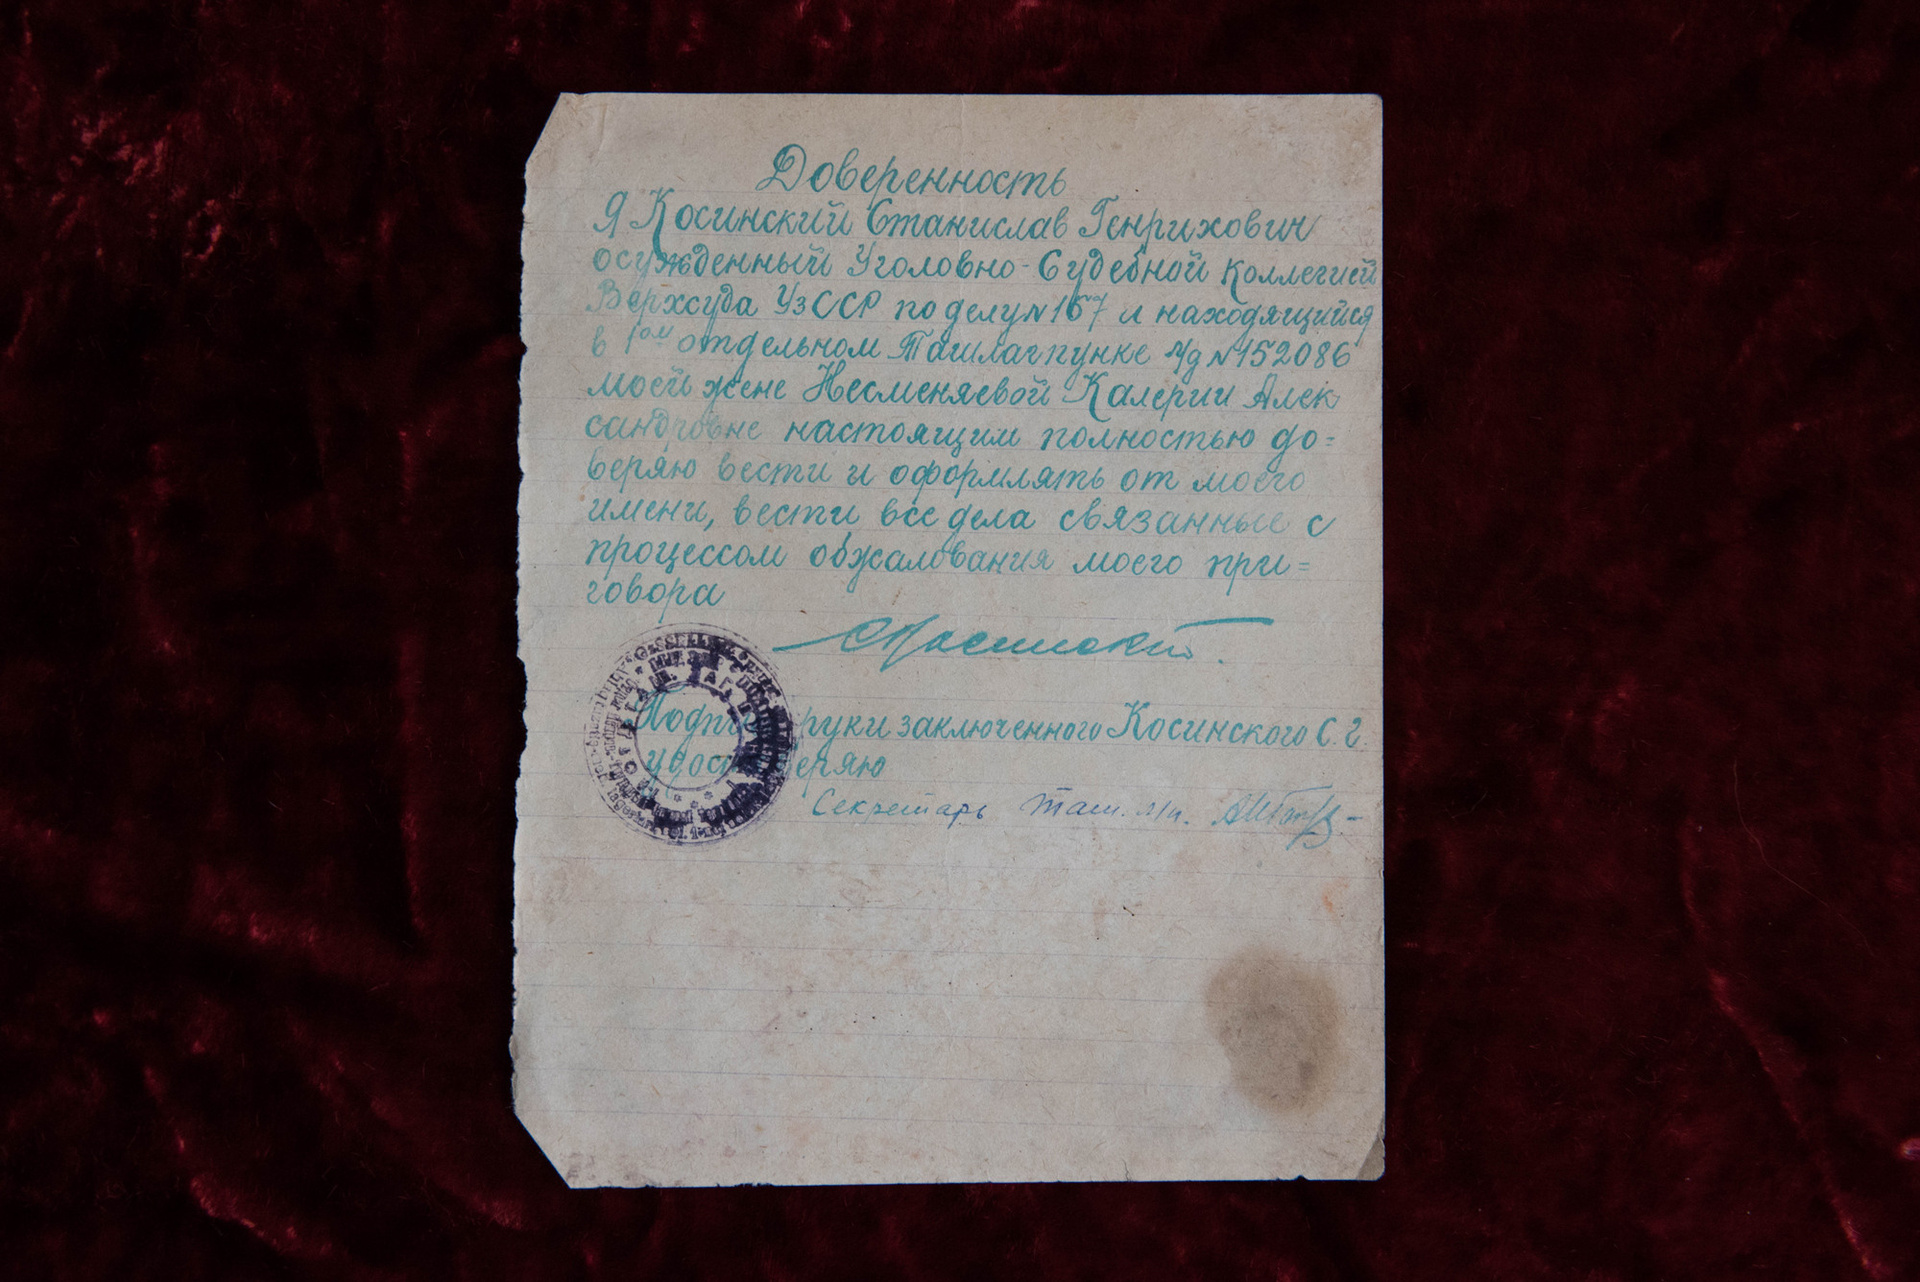 Доверенность
Я Косинский Станислав Генрихович
осужденный Уголовно-Судебной Коллегией
Верхсуда УзССР по делу №167 и находящийся
в 1ом отдельном Ташлагпунке л/д №152086
моей жене Несменяевой Калерии Алек
сандровне настоящим полностью до=
веряю вести и оформлять от моего
имени, вести все дела связанные с
процессом обжалования моего при=
говора
СКосинский.
руки заключенного Косинского С.Г.
Секретарь Таш. л/п.